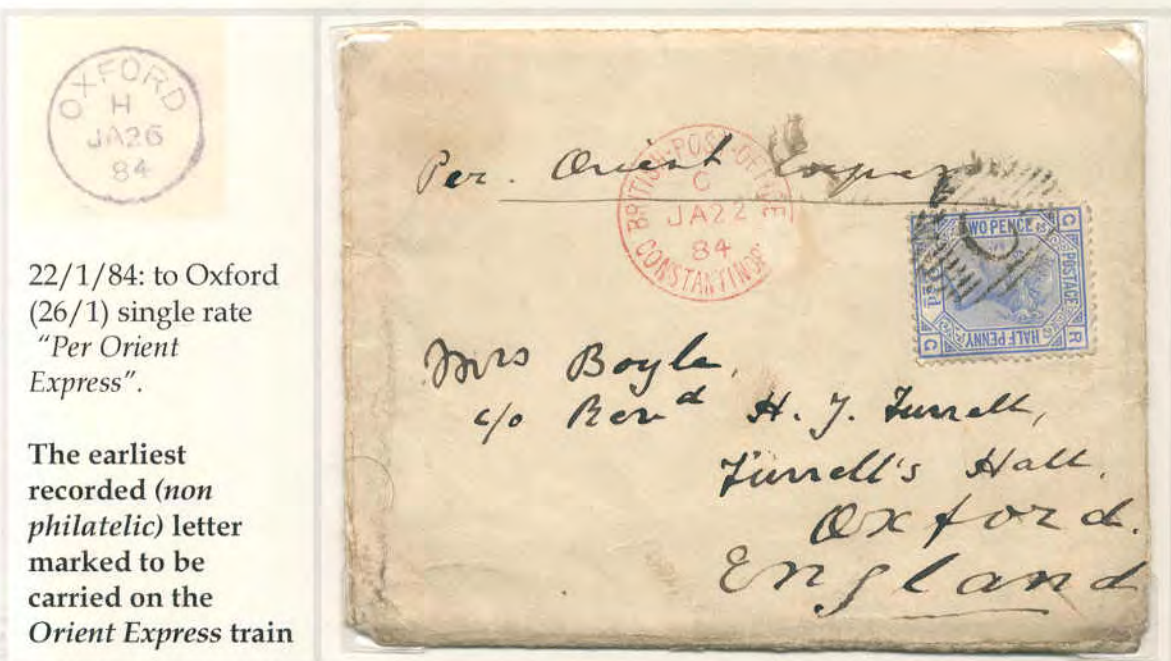 OXFORD
H
JA26
84
22/1/84: to Oxford
(26/1) single rate
"Per Orient
Express".
The earliest
recorded (non
philatelic) letter
marked to be
carried on the
Orient Express train
Per. Orient Express
BRITISH-POST-OFFICE
C
JA22
84
CONSTANTINOPLE
C
TWO PENCE
HALF PENNY
POSTAGE
C
R
C
Mrs Boyle,
c/o Revd H. J. Turrell,
Turrell's Hall,
Oxford.
England